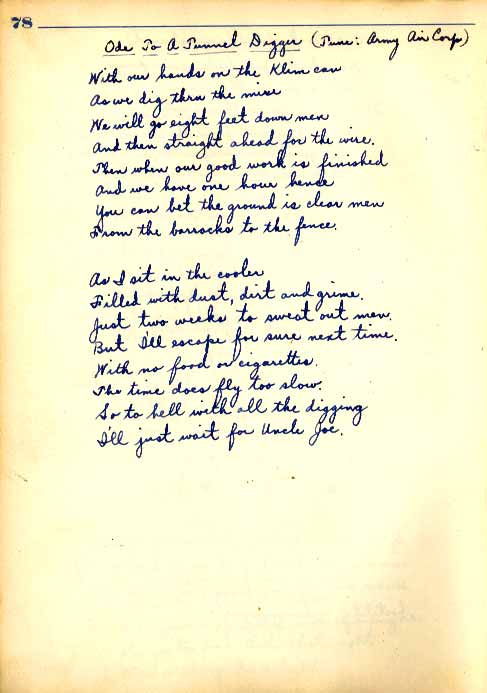 78
Ode To A Tunnel Digger (Tune: Army Air Corp)
With our hands on the Klim can
As we dig thru the mire
We will go eight feet down men
And then straight ahead for the wire.
Then when our good work is finished
And we have one hour hense
You can bet the ground is clear men
From the barracks to the fence.
As I sit in the cooler
Filled with dust, dirt and grime.
Just two weeks to sweat out men.
But I'll escape for sure next time.
With no food or cigarettes.
The time does fly too slow.
So to hell with all the digging
I'll just wait for Uncle Joe.